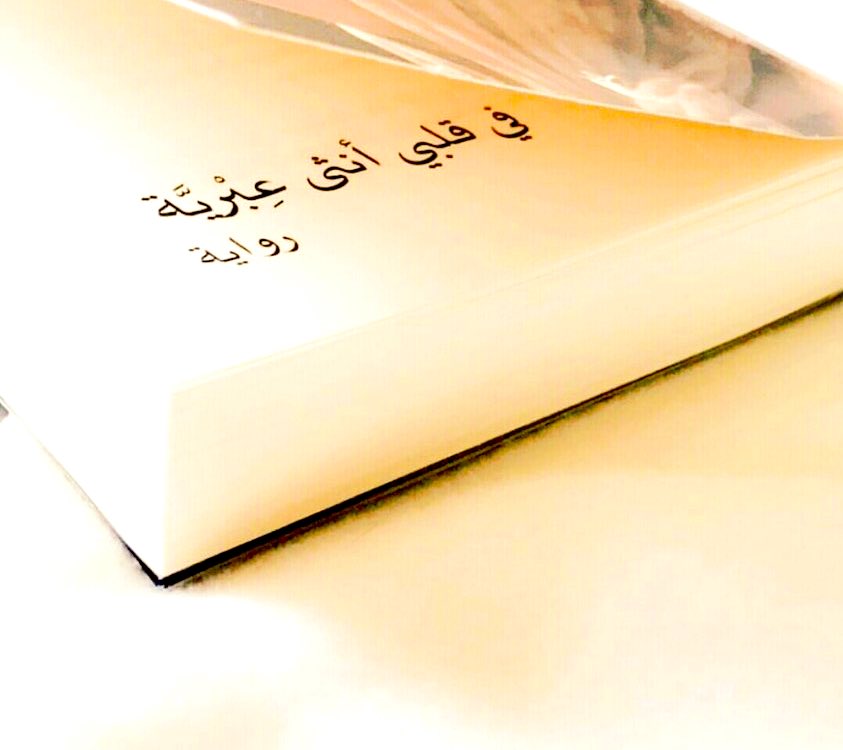 في قلبي أنثى عِبْريَّة
رواية